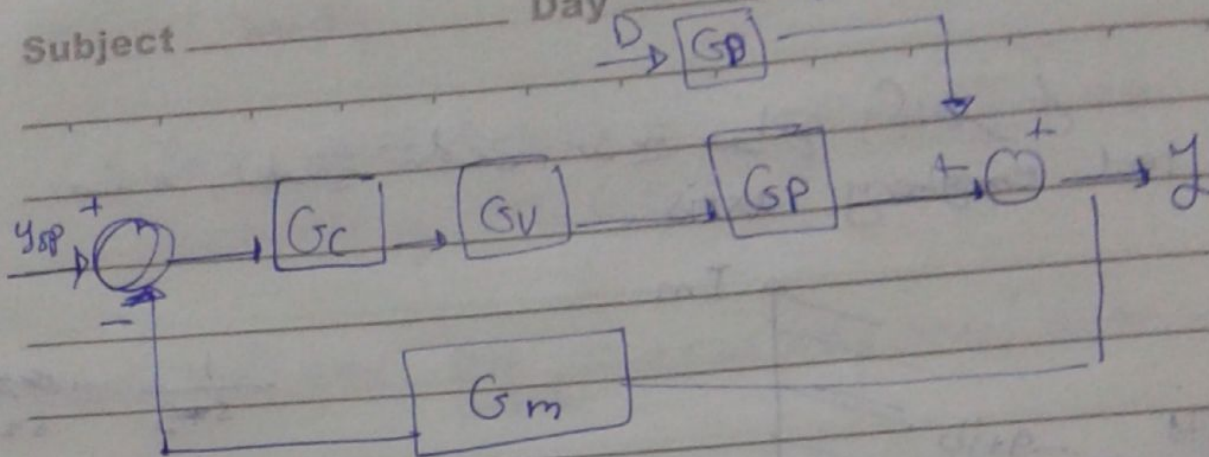 Subject Day
D GD
+ + +
ysp Gc Gv Gp y
-
Gm